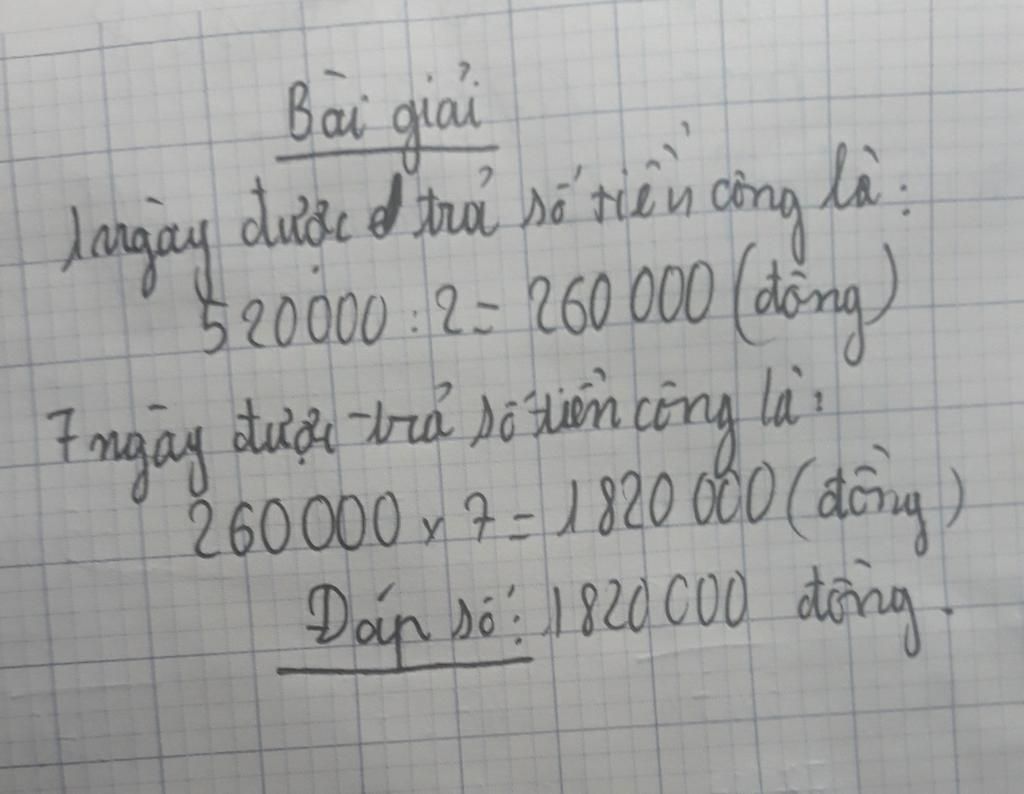 Bài giải
1 ngày được trả số tiền công là:
520000 : 2 = 260 000 (đồng)
7 ngày được trả số tiền công là:
260000 x 7 = 1820 000 (đồng)
Đáp số: 1820 000 đồng.